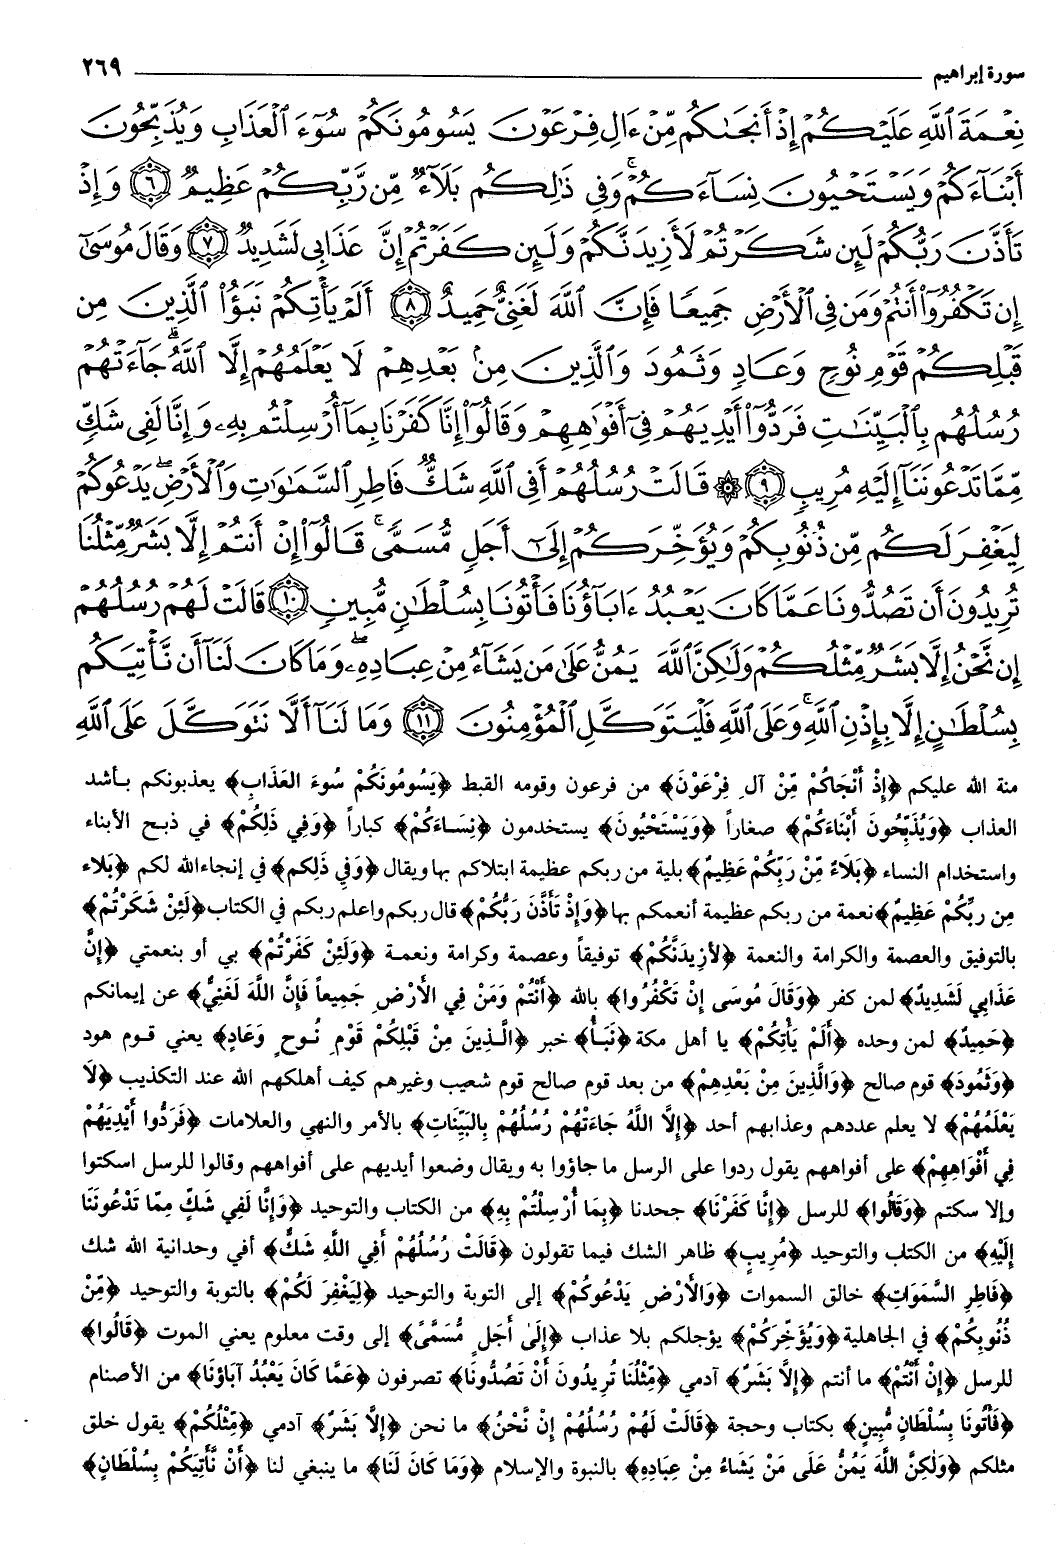 سورة إبراهيم ٢٦٩
نِعْمَةَ ٱللَّهِ عَلَيْكُمْ إِذْ أَنجَىٰكُم مِّنْ ءَالِ فِرْعَوْنَ يَسُومُونَكُمْ سُوٓءَ ٱلْعَذَابِ وَيُذَبِّحُونَ
أَبْنَآءَكُمْ وَيَسْتَحْيُونَ نِسَآءَكُمْ ۚ وَفِى ذَٰلِكُم بَلَآءٌ مِّن رَّبِّكُمْ عَظِيمٌ ٦ وَإِذْ
تَأَذَّنَ رَبُّكُمْ لَئِن شَكَرْتُمْ لَأَزِيدَنَّكُمْ وَلَئِن كَفَرْتُمْ إِنَّ عَذَابِى لَشَدِيدٌ ٧ وَقَالَ مُوسَىٰٓ
إِن تَكْفُرُوٓا۟ أَنتُمْ وَمَن فِى ٱلْأَرْضِ جَمِيعًا فَإِنَّ ٱللَّهَ لَغَنِىٌّ حَمِيدٌ ٨ أَلَمْ يَأْتِكُمْ نَبَؤُا۟ ٱلَّذِينَ مِن
قَبْلِكُمْ قَوْمِ نُوحٍ وَعَادٍ وَثَمُودَ وَٱلَّذِينَ مِنۢ بَعْدِهِمْ لَا يَعْلَمُهُمْ إِلَّا ٱللَّهُ ۚ جَآءَتْهُمْ
رُسُلُهُم بِٱلْبَيِّنَـٰتِ فَرَدُّوٓا۟ أَيْدِيَهُمْ فِىٓ أَفْوَٰهِهِمْ وَقَالُوٓا۟ إِنَّا كَفَرْنَا بِمَآ أُرْسِلْتُم بِهِۦ وَإِنَّا لَفِى شَكٍّ
مِّمَّا تَدْعُونَنَآ إِلَيْهِ مُرِيبٍ ٩ ۞ قَالَتْ رُسُلُهُمْ أَفِى ٱللَّهِ شَكٌّ فَاطِرِ ٱلسَّمَـٰوَٰتِ وَٱلْأَرْضِ ۖ يَدْعُوكُمْ
لِيَغْفِرَ لَكُم مِّن ذُنُوبِكُمْ وَيُؤَخِّرَكُمْ إِلَىٰٓ أَجَلٍ مُّسَمًّى ۚ قَالُوٓا۟ إِنْ أَنتُمْ إِلَّا بَشَرٌ مِّثْلُنَا
تُرِيدُونَ أَن تَصُدُّونَا عَمَّا كَانَ يَعْبُدُ ءَابَآؤُنَا فَأْتُونَا بِسُلْطَـٰنٍ مُّبِينٍ ١٠ قَالَتْ لَهُمْ رُسُلُهُمْ
إِن نَّحْنُ إِلَّا بَشَرٌ مِّثْلُكُمْ وَلَـٰكِنَّ ٱللَّهَ يَمُنُّ عَلَىٰ مَن يَشَآءُ مِنْ عِبَادِهِۦ ۖ وَمَا كَانَ لَنَآ أَن نَّأْتِيَكُم
بِسُلْطَـٰنٍ إِلَّا بِإِذْنِ ٱللَّهِ ۚ وَعَلَى ٱللَّهِ فَلْيَتَوَكَّلِ ٱلْمُؤْمِنُونَ ١١ وَمَا لَنَآ أَلَّا نَتَوَكَّلَ عَلَى ٱللَّهِ
منة الله عليكم ﴿إِذْ أَنْجَاكُمْ مِّنْ آلِ فِرْعَوْنَ﴾ من فرعون وقومه القبط ﴿يَسُومُونَكُمْ سُوءَ العَذَابِ﴾ يعذبونكم بأشد
العذاب ﴿وَيُذَبِّحُونَ أَبْنَاءَكُمْ﴾ صغاراً ﴿وَيَسْتَحْيُونَ﴾ يستخدمون ﴿نِسَاءَكُمْ﴾ كباراً ﴿وَفِي ذَلِكُمْ﴾ في ذبح الأبناء
واستخدام النساء ﴿بَلَاءٌ مِّنْ رَبِّكُمْ عَظِيمٌ﴾ بلية من ربكم عظيمة ابتلاكم بها ويقال ﴿وَفِي ذَلِكم﴾ في إنجاء الله لكم ﴿بَلاء
مِن ربِّكُمْ عَظِيمٌ﴾ نعمة من ربكم عظيمة أنعمكم بها ﴿وَإِذْ تَأَذَّنَ رَبُّكُمْ﴾ قال ربكم واعلم ربكم في الكتاب ﴿لَئِنْ شَكَرْتُمْ﴾
بالتوفيق والعصمة والكرامة والنعمة ﴿لأَزِيدَنَّكُمْ﴾ توفيقاً وعصمة وكرامة ونعمة ﴿وَلَئِنْ كَفَرْتُمْ﴾ بي أو بنعمتي ﴿إِنَّ
عَذَابِي لَشَدِيدٌ﴾ لمن كفر ﴿وَقَالَ مُوسَى إِنْ تَكْفُرُوا﴾ بالله ﴿أَنْتُمْ وَمَنْ فِي الأَرْضِ جَمِيعاً فَإِنَّ اللَّهَ لَغَنِيٌّ﴾ عن إيمانكم
﴿حَمِيدٌ﴾ لمن وحده ﴿أَلَمْ يَأْتِكُمْ﴾ يا أهل مكة ﴿نَبَأُ﴾ خبر ﴿الَّذِينَ مِنْ قَبْلِكُمْ قَوْمِ نُوحٍ وَعَادٍ﴾ يعني قوم هود
﴿وَثَمُودَ﴾ قوم صالح ﴿وَالَّذِينَ مِنْ بَعْدِهِمْ﴾ من بعد قوم صالح قوم شعيب وغيرهم كيف أهلكهم الله عند التكذيب ﴿لَا
يَعْلَمُهُمْ﴾ لا يعلم عددهم وعذابهم أحد ﴿إِلَّا اللَّهُ جَاءَتْهُمْ رُسُلُهُمْ بِالبَيِّنَاتِ﴾ بالأمر والنهي والعلامات ﴿فَرَدُّوا أَيْدِيَهُمْ
فِي أَفْوَاهِهِمْ﴾ على أفواههم يقول ردوا على الرسل ما جاؤوا به ويقال وضعوا أيديهم على أفواههم وقالوا للرسل اسكتوا
وإلا سكتم ﴿وَقَالُوا﴾ للرسل ﴿إِنَّا كَفَرْنَا﴾ جحدنا ﴿بِمَا أُرْسِلْتُمْ بِهِ﴾ من الكتاب والتوحيد ﴿وَإِنَّا لَفِي شَكٍّ مِمَّا تَدْعُونَنَا
إِلَيْهِ﴾ من الكتاب والتوحيد ﴿مُرِيبٍ﴾ ظاهر الشك فيما تقولون ﴿قَالَتْ رُسُلُهُمْ أَفِي اللَّهِ شَكٌّ﴾ أفي وحدانية الله شك
﴿فَاطِرِ السَّمَوَاتِ﴾ خالق السموات ﴿وَالأَرْضِ يَدْعُوكُمْ﴾ إلى التوبة والتوحيد ﴿لِيَغْفِرَ لَكُمْ﴾ بالتوبة والتوحيد ﴿مِّنْ
ذُنُوبِكُمْ﴾ في الجاهلية ﴿وَيُؤَخِّرَكُمْ﴾ يؤجلكم بلا عذاب ﴿إِلَىٰ أَجَلٍ مُسَمًّى﴾ إلى وقت معلوم يعني الموت ﴿قَالُوا﴾
للرسل ﴿إِنْ أَنْتُمْ﴾ ما أنتم ﴿إِلَّا بَشَرٌ﴾ آدمي ﴿مِّثْلُنَا تُرِيدُونَ أَنْ تَصُدُّونَا﴾ تصرفون ﴿عَمَّا كَانَ يَعْبُدُ آبَاؤُنَا﴾ من الأصنام
﴿فَأْتُونَا بِسُلْطَانٍ مُّبِينٍ﴾ بكتاب وحجة ﴿قَالَتْ لَهُمْ رُسُلُهُمْ إِنْ نَّحْنُ﴾ ما نحن ﴿إِلَّا بَشَرٌ﴾ آدمي ﴿مِّثْلُكُمْ﴾ يقول خلق
مثلكم ﴿وَلَكِنَّ اللَّهَ يَمُنُّ عَلَى مَنْ يَشَاءُ مِنْ عِبَادِهِ﴾ بالنبوة والإسلام ﴿وَمَا كَانَ لَنَا﴾ ما ينبغي لنا ﴿أَنْ نَّأْتِيَكُمْ بِسُلْطَانٍ﴾